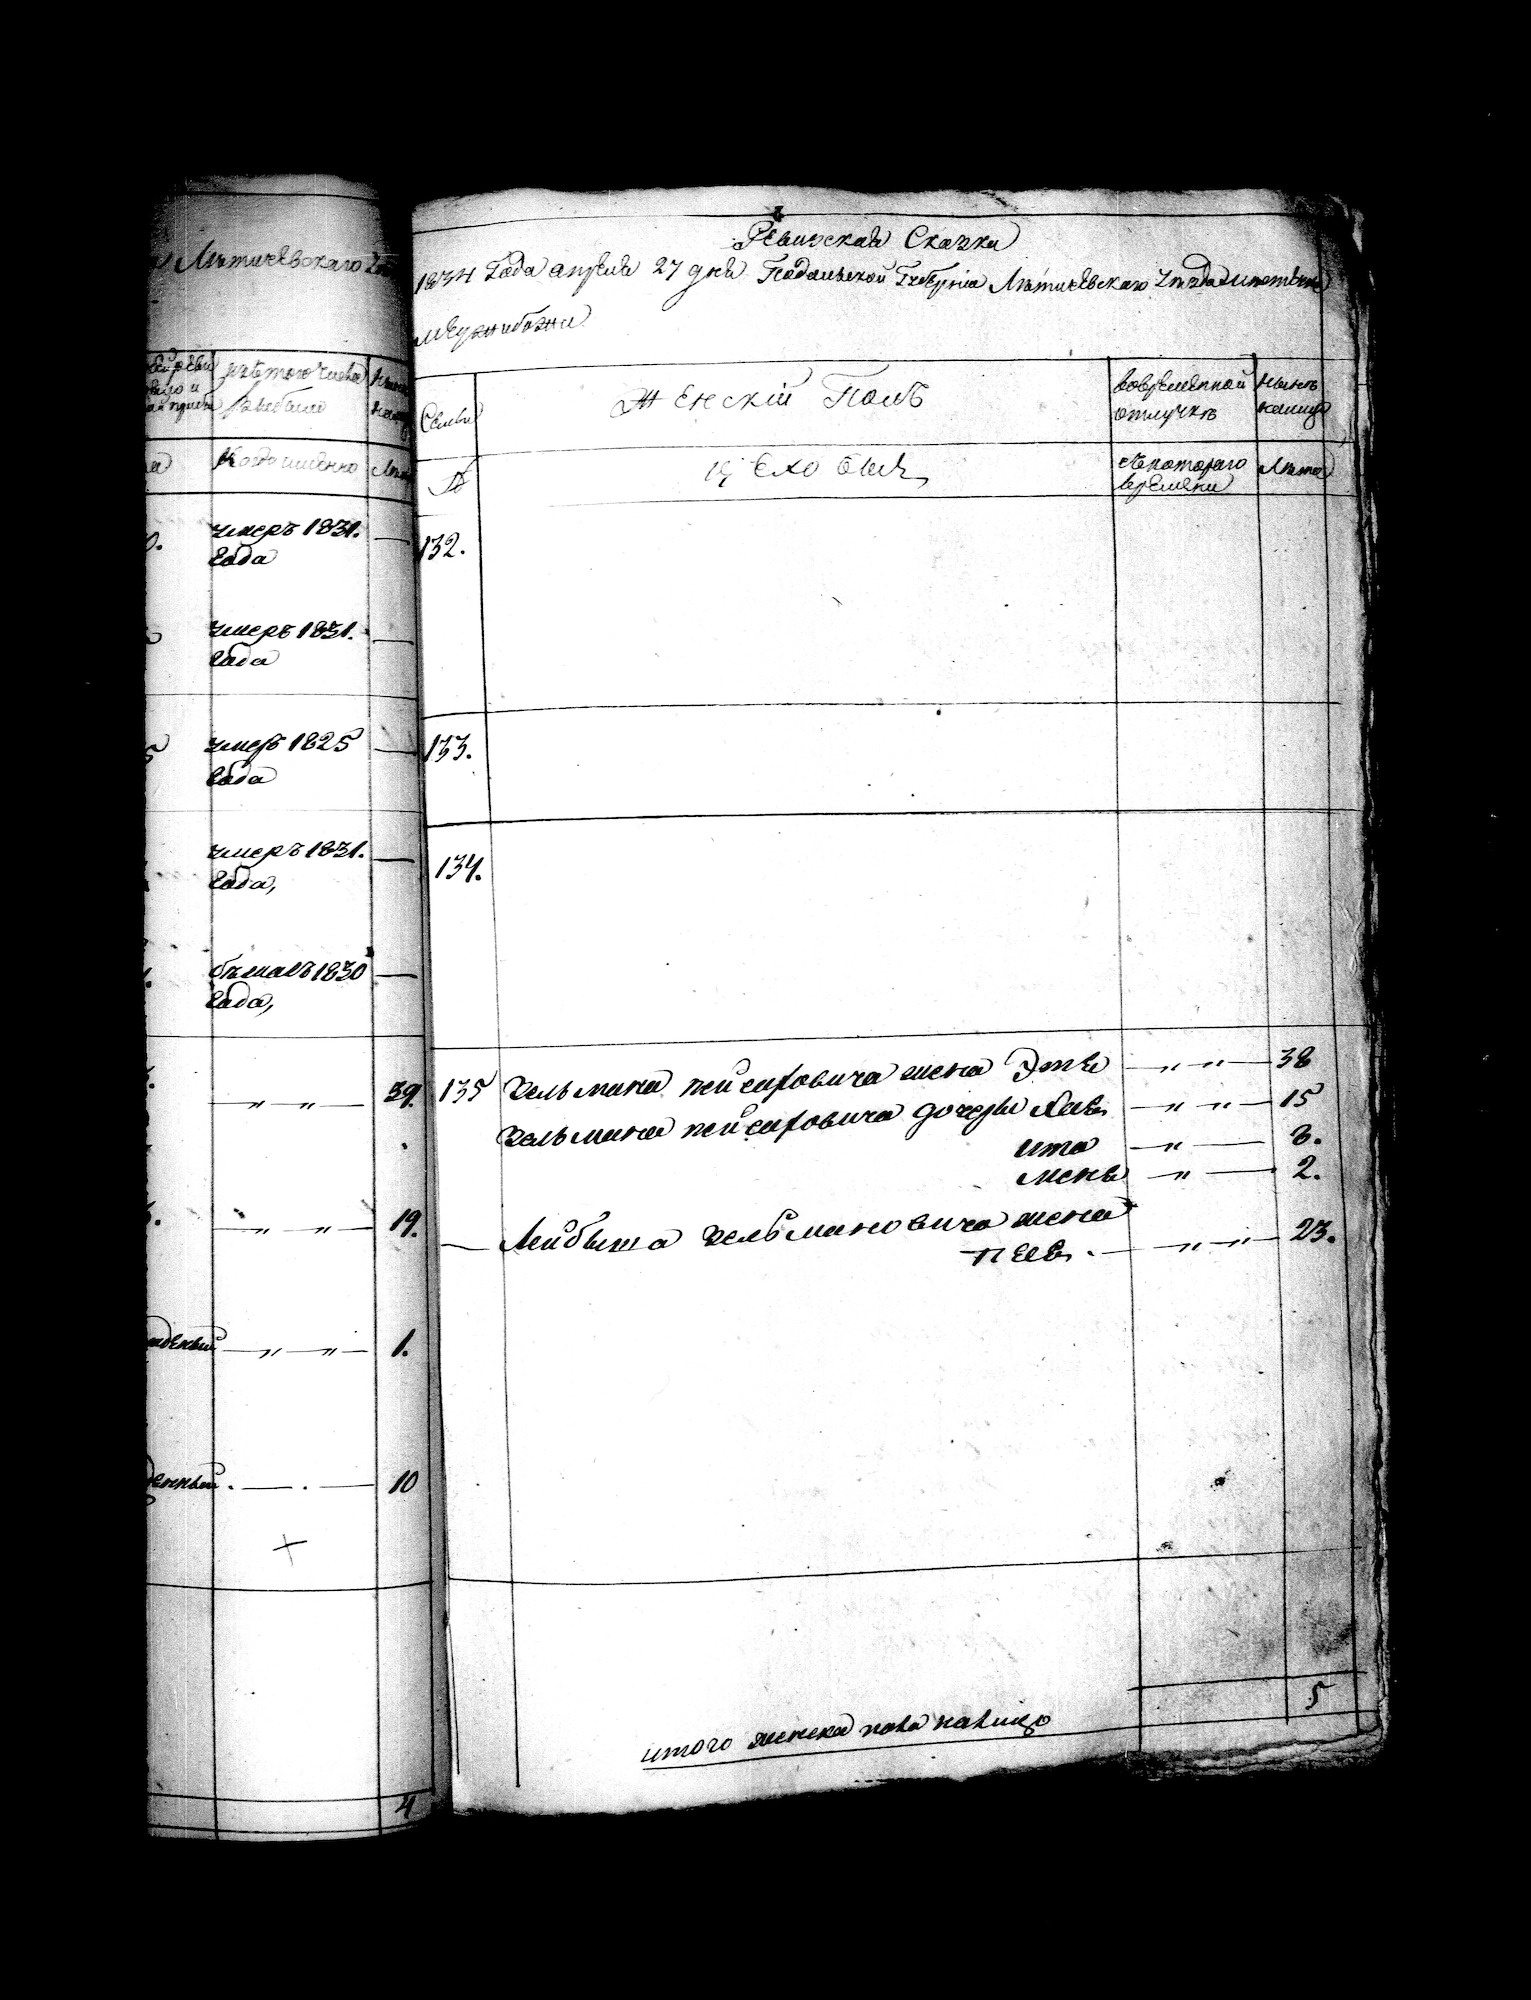 Лѣтичевскаго
изъ того числа
выбыло
Когда именно
Лѣта
умеръ 1831.
года
умеръ 1831.
года
умеръ 1825
года
умеръ 1831.
года,
бѣжалъ 1830
года,
— „ — „ — 39.
— „ — „ — 19.
— „ — „ — 1.
. — . — 10
4
Ревизская Сказка
1834 Года апреля 27 дня Подольской Губерніи Лѣтичевскаго уѣзда местечка
Межибожи
Семьи
Женскій Полъ
вовременной
отлучкѣ
нынѣ
налицо
№
съкотораго
времени
Лѣта
132.
133.
134.
135 Зельмана лейзеровича жена Этя — „ „ — 38
Зельмана лейзеровича дочери Хая — „ „ — 15
ита — „ — 8.
меня — „ — 2.
— Лейбыша Зельмановича жена
пея. — „ „ — 23.
итого женска пола налицо
5